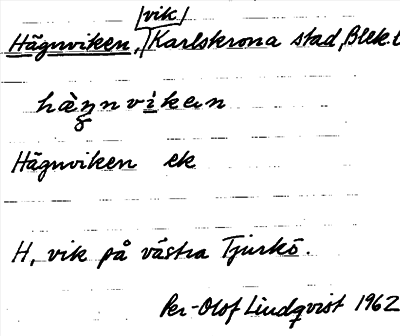 /vik/
Hägnviken, Karlskrona stad, Blek. l
hä̀ŋnvìkɐn
Hägnviken ek
H, vik på västra Tjurkö.
Per-Olof Lindqvist 1962